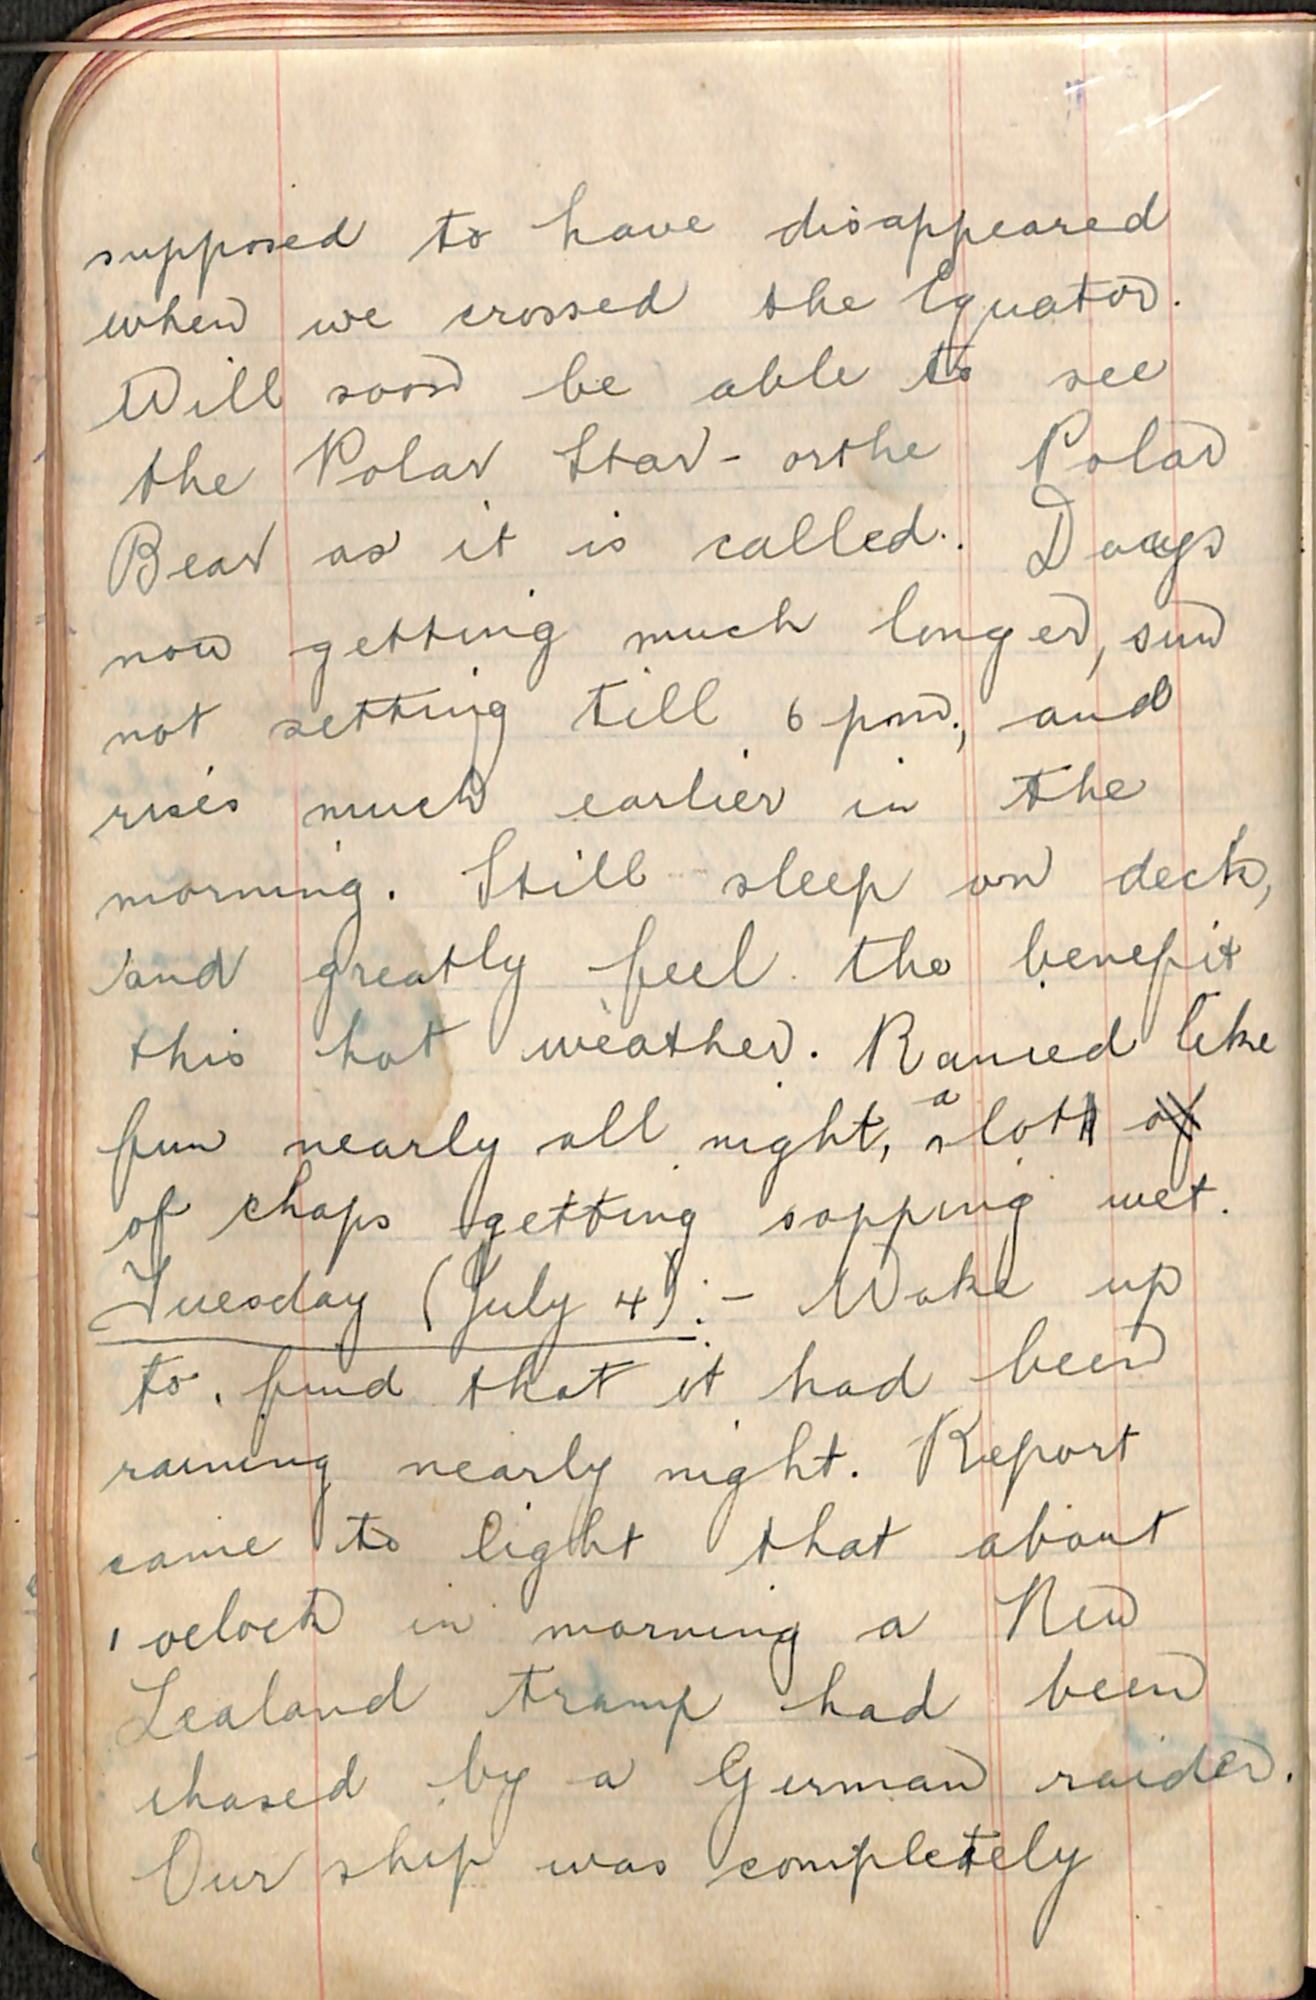 supposed to have disappeared
when we crossed the Equator.
Will soon be able to see
the Polar Star - or the Polar
Bear as it is called. Days
now getting much longer, sun
not setting till 6 pm., and
rises much earlier in the
morning. Still sleep on deck,
and greatly feel the benefit
this hot weather. Rained like
fun nearly all night, a lot of
of chaps getting sopping wet.
Tuesday (July 4):- Woke up
to find that it had been
raining nearly night. Report
came to light that about
1 oclock in morning a New
Zealand tramp had been
chased by a German raider.
Our ship was completely